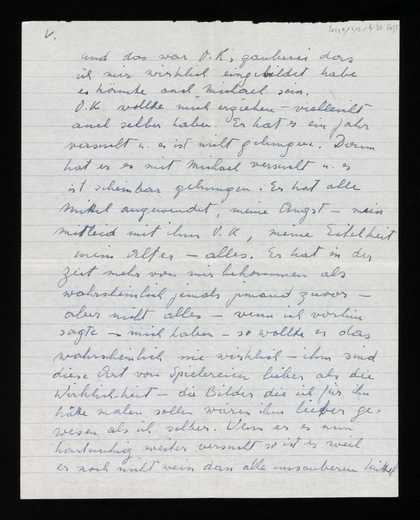 V.
und das war O.K., glaubend dass
ich mir wirklich eingebildet habe
es könnte auch Michael sein.
O.K. wollte mich erziehen – vielleicht
auch selber haben. Er hat es ein Jahr
versucht u. es ist nicht gelungen. Dann
hat er es mit Michael versucht u. es
ist scheinbar gelungen. Er hat alle
Mittel angewendet, meine Angst – mein
Mitleid mit ihm O.K., meine Eitelkeit
mein Alter – alles. Er hat in der
Zeit mehr von mir bekommen als
wahrscheinlich jemals jemand zuvor –
aber nicht alles – wenn ich vorhin
sagte – mich haben – so wollte er das
wahrscheinlich nie wirklich – ihm sind
diese Art von Spielereien lieber als die
Wirklichkeit – die Bilder die ich für ihn
hätte malen sollen waren ihm lieber ge-
wesen als ich selber. Wenn er es nun
hartnäckig weiter versucht so ist es weil
er noch nicht weiss dass alle unsauberen Mittel